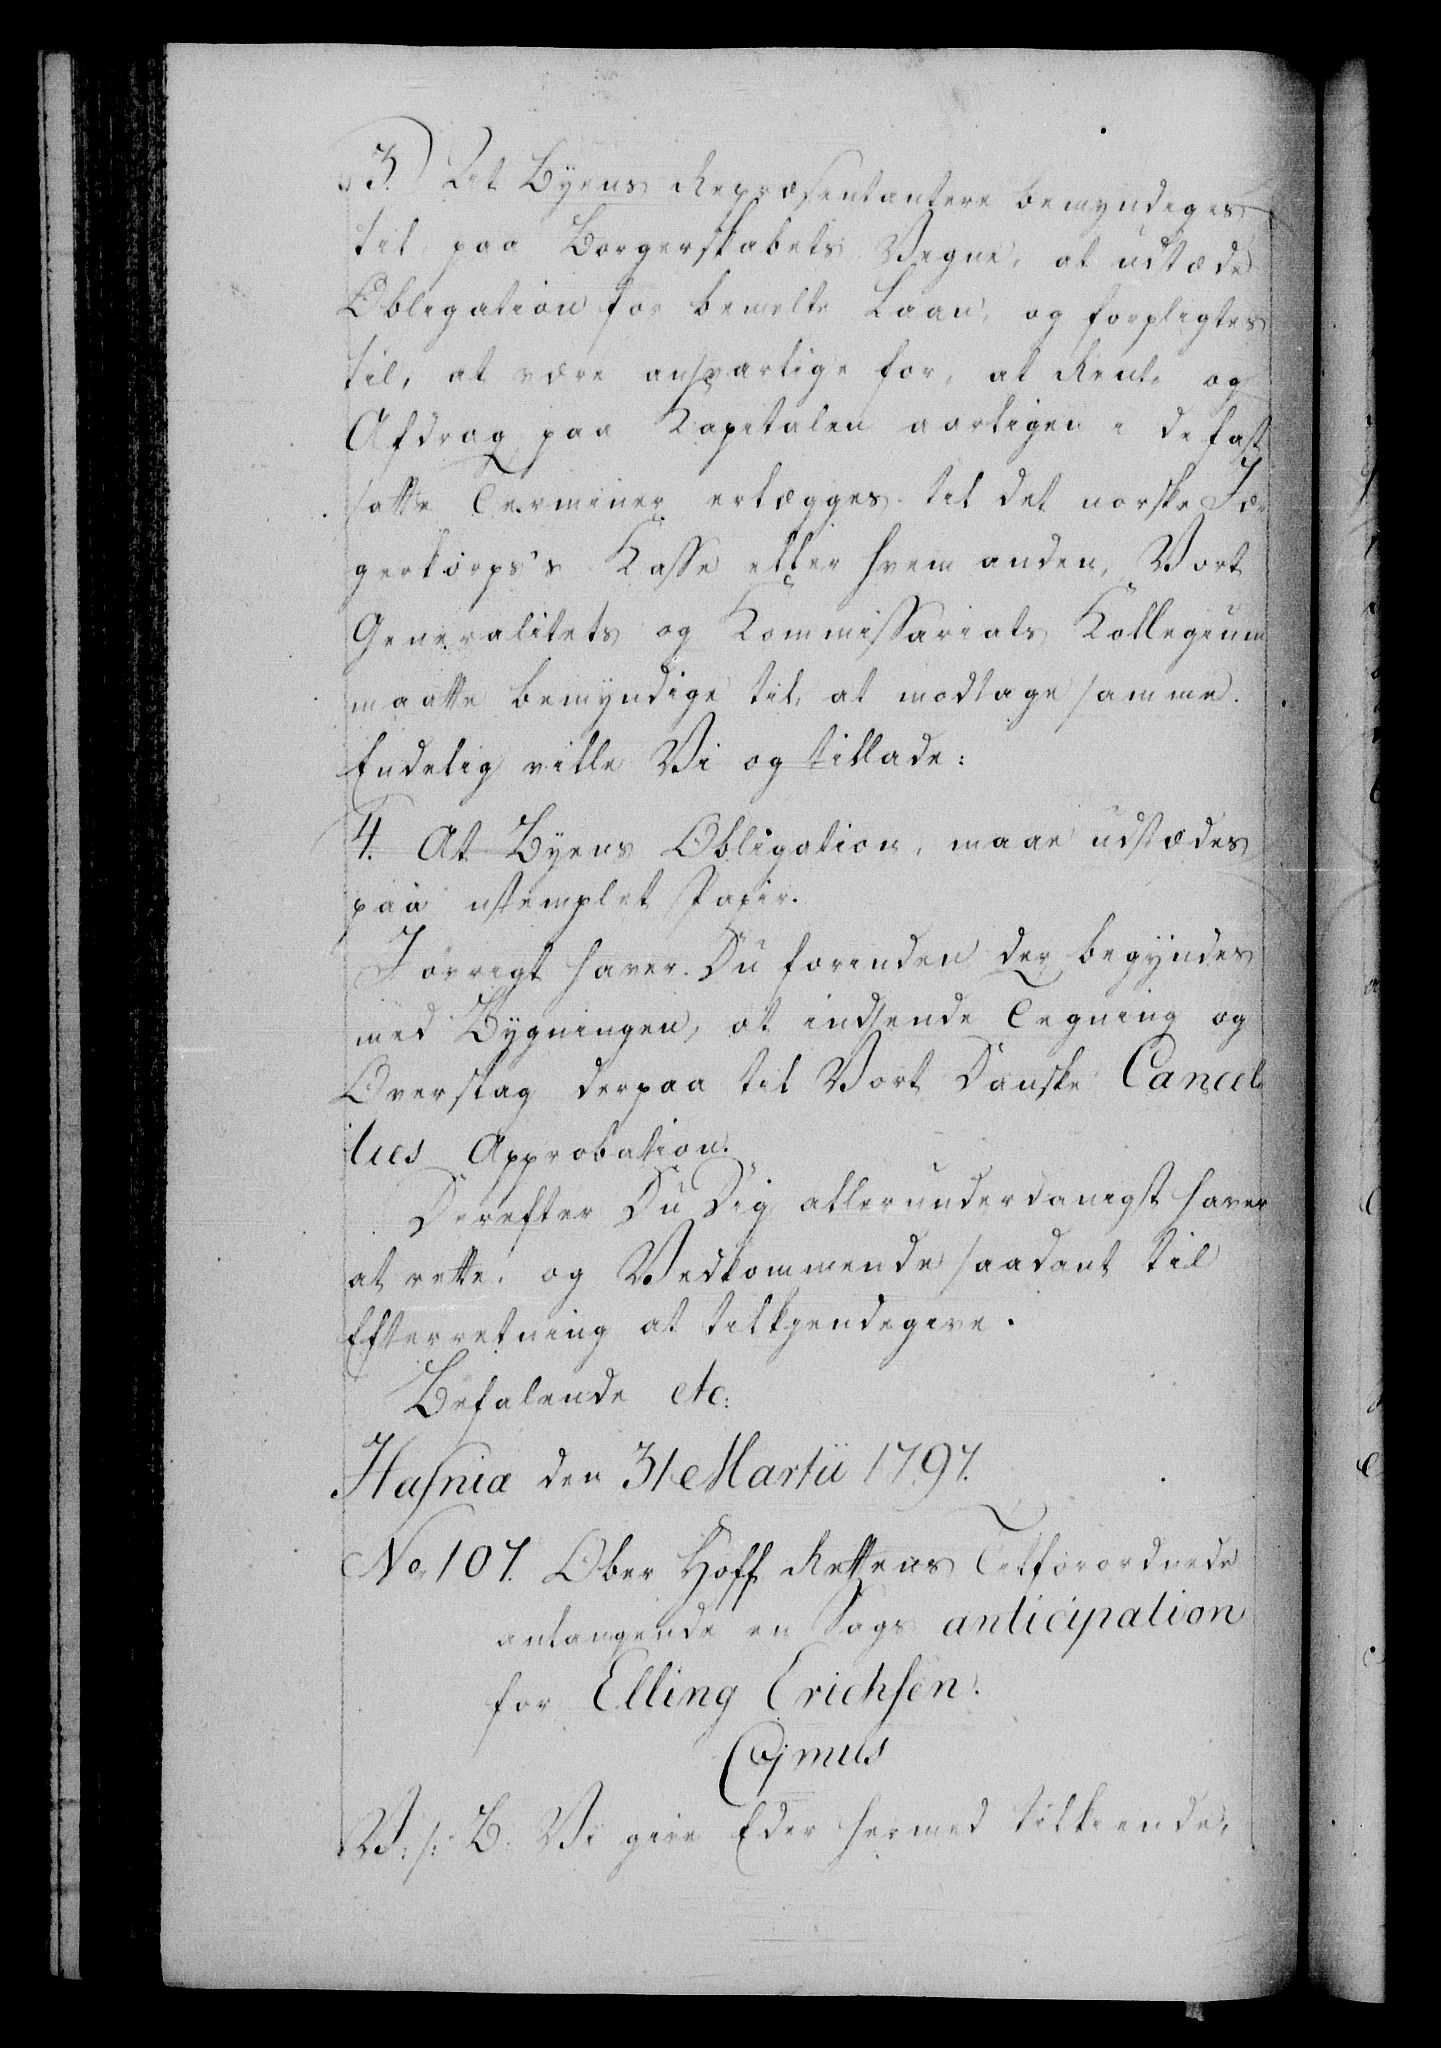 3.) At Byens Repræsentantere bemyndiges
til paa Borgerskabets Vegne, at udstæde
Obligation for bemelte Laan, og forpligtes
til, at være ansvarlige for, at Rente og
Afdrag paa Kapitalen aarligen i de fast
satte Terminer erlægges til det norske Jæ
gerkorps's Kasse eller hvem anden, Vort
Generalitets og Kommissariats Kollegium
maatte bemyndige til, at modtage samme.
Endelig ville Vi og tillade:
4. At Byens Obligation, maae udstædes
paa ustemplet Papir.
I øvrigt haver Du forinden der begyndes
med Bygningen, at indsende Tegning og
Overslag derpaa til Vort Danske Cancel
lies Approbation.
Derefter Du Dig allerunderdanigst haver
at rette, og Vedkommende saadant til
Efterretning at tilkjendegive.
Befalende etc:
Hafniæ den 31 Martii 1797.
No 107. Ober Hoff Rettens Tilforordnede
anlangende en Sags anticipation
for Elling Erichsen.
C7mus
V: s: B. Vi give Eder hermed tilkiende,